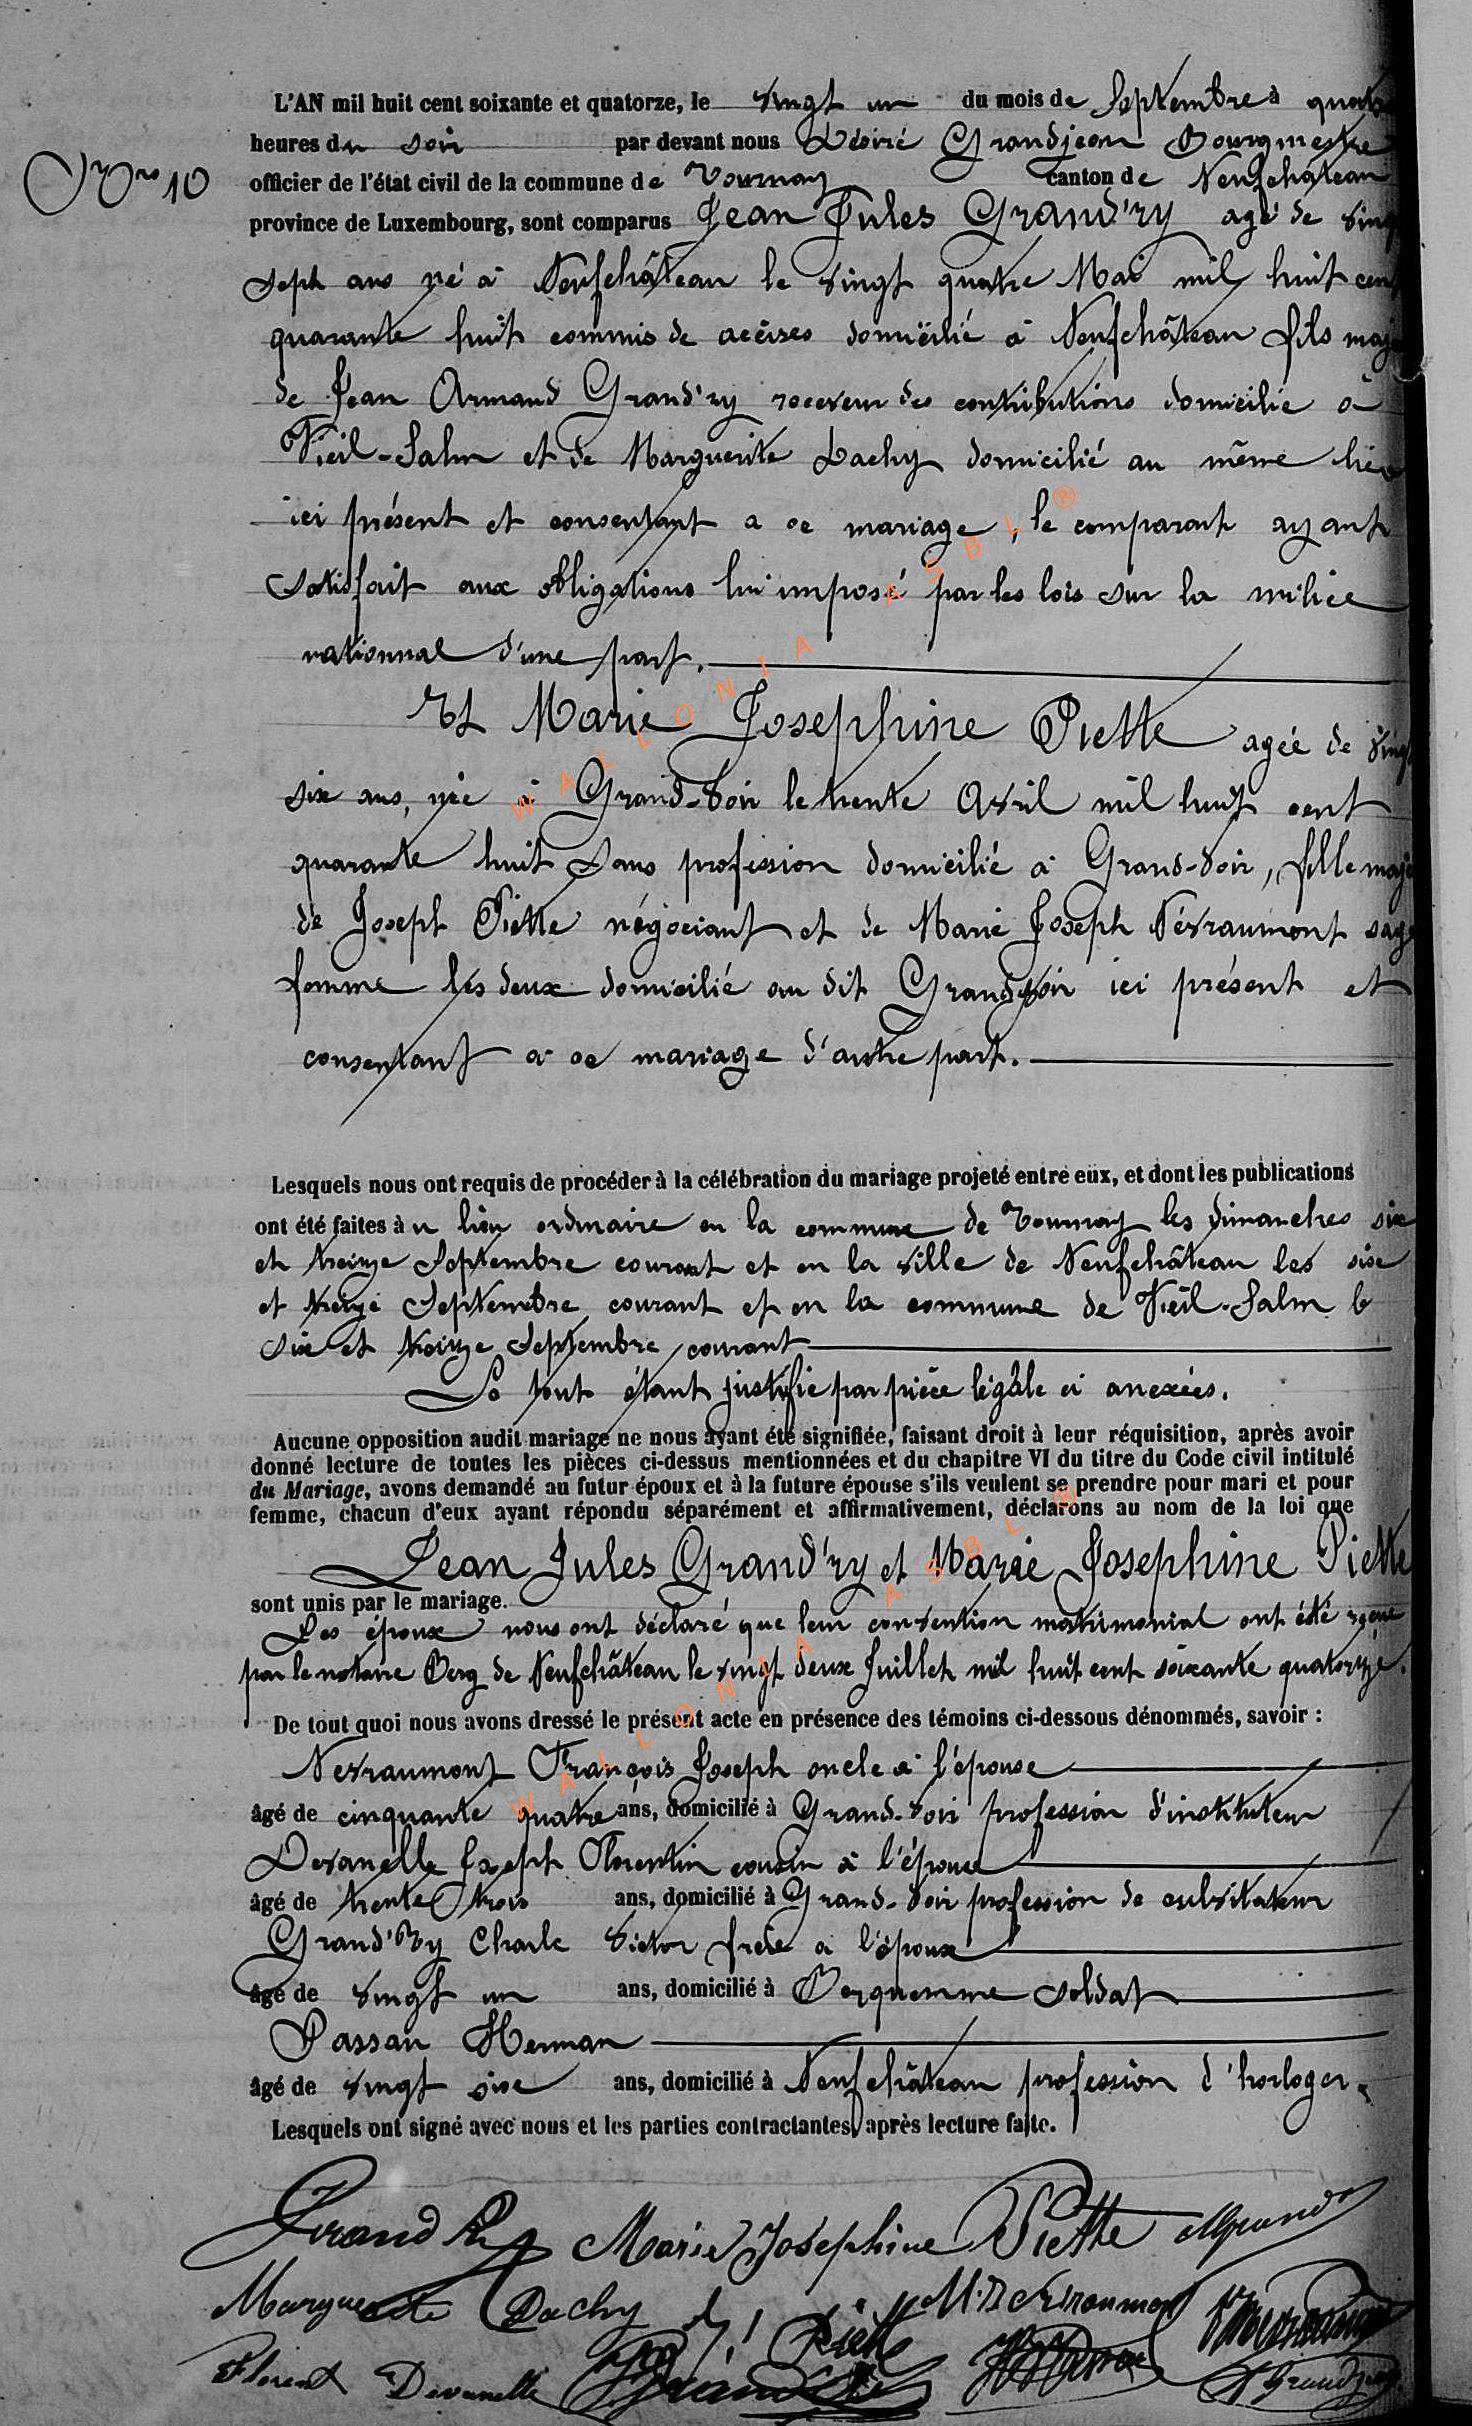 L'AN mil huit cent soixante et quatorze, le vingt un du mois de Septembre à quatre
heures du soir par devant nous Désiré Grandjean Bourgmestre
Nro 10
officier de l'état civil de la commune de Tournay canton de Neufchâteau
province de Luxembourg, sont comparus Jean Jules Grand'ry agé de ving
seph ans né à Neufchâteau le vingt quatre Mai mil huit cent
quarante huit commis de accises domicilié à Neufchâteau fils maj
de Jean Armand Grand'ry receveur des contributions domicilié à
Vieil-Salm et de Marguerite Dachy domicilié au même lieu
ici présent et consentant a ce mariage, le comparant ayant
satisfait aux obligations lui imposé par les lois sur la milice
nationnal d'une part.
Et Marie Josephine Piette agée de ving
six ans, née à Grand-Voir le trente Avril mil huit cent
quarante huit sans profession domicilié à Grand-Voir, fille maj
de Joseph Piette négociant et de Marie Joseph Névraumont sage
femme les deux domicilié au dit Grandvoir ici présent et
consentant a ce mariage d'autre part.
Lesquels nous ont requis de procéder à la célébration du mariage projeté entre eux, et dont les publications
ont été faites au lieu ordinaire en la commune de Tournay les dimanches six
et treize Septembre courant et en la ville de Neufchâteau les sise
et treize Septembre courant et en la commune de Vieil-Salm le
six et treize Septembre courant
Le tout étant justifié par pièce légale ci anexées.
Aucune opposition audit mariage ne nous ayant été signifiée, faisant droit à leur réquisition, après avoir
donné lecture de toutes les pièces ci-dessus mentionnées et du chapitre VI du titre du Code civil intitulé
du Mariage, avons demandé au futur époux et à la future épouse s'ils veulent se prendre pour mari et pour
femme, chacun d'eux ayant répondu séparément et affirmativement, déclarons au nom de la loi que
Jean Jules Grand'ry et Marie Josephine Piette
sont unis par le mariage.
Les époux nous ont déclaré que leur convention matrimonial ont été reçue
par le notaire Berg de Neufchâteau le vingt deux Juillet mil huit cent soixante quatorze.
De tout quoi nous avons dressé le présent acte en présence des témoins ci-dessous dénommés, savoir :
Nevraumont François Joseph oncle à l'épouse
âgé de cinquante quatre ans, domicilié à Grand-Voir profession d'instituteur
Devanelle Joseph Florentin cousin à l'épouse
âgé de trente trois ans, domicilié à Grand-Voir profession de cultivateur
Grand'Ry Charle Victor frère a l'époux
âgé de vingt un ans, domicilié à Berquemme soldat
Passau Herman
âgé de vingt sise ans, domicilié à Neufchâteau profession d'horloger.
Lesquels ont signé avec nous et les parties contractantes après lecture faite.
Grand Ry Marie Josephine Piette
Marguerite Dachy J. J. Piette M. J. Nevraumont
Florent Devanelle
WALLONIA ASBL ®
WALLONIA ASBL ®